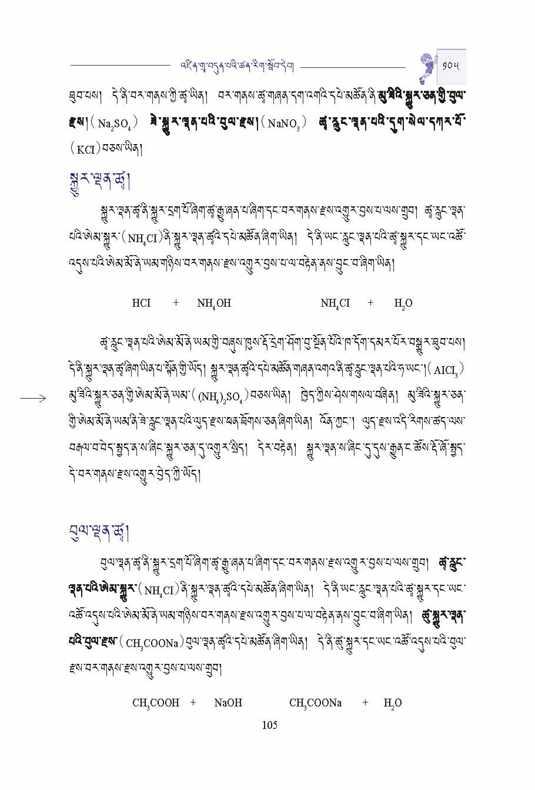 འཛིན་གྲྭ་བདུན་པའི་ཚན་རིག་སློབ་དེབ། ༡༠༥
ཐུབ་པས། དེ་ནི་བར་གནས་ཀྱི་ཚྭ་ཡིན། བར་གནས་ཚྭ་གཞན་དག་འགའི་དཔེ་མཚོན་ནི་མུ་ཟིའི་སྐྱུར་ཅན་གྱི་བུལ་
རྫས།(Na₂SO₄) ཟེ་སྐྱུར་ལྡན་པའི་བུལ་རྫས།(NaNO₃) ཚྭ་རླུང་ལྡན་པའི་དུག་སེལ་དཀར་པོ་
(KCI)བཅས་ཡིན།
སྐྱུར་ལྡན་ཚྭ།
སྐྱུར་ལྡན་ཚྭ་ནི་སྐྱུར་དྲག་པོ་ཞིག་ཚྭ་རྒྱུ་ཞན་པ་ཞིག་དང་བར་གནས་རྫས་འགྱུར་བྱས་པ་ལས་གྲུབ། ཚྭ་རླུང་ལྡན་
པའི་ཨེམ་སྐྱུར་(NH₄CI)ནི་སྐྱུར་ལྡན་ཚྭའི་དཔེ་མཚོན་ཞིག་ཡིན། དེ་ནི་ཡང་རླུང་ལྡན་པའི་ཚྭ་སྐྱུར་དང་ཡང་འཚོ་
འདུས་པའི་ཨེམ་མོ་ནེ་ཡམ་གཉིས་བར་གནས་རྫས་འགྱུར་བྱས་པ་ལ་བརྟེན་ནས་བྱུང་བ་ཞིག་ཡིན།
HCI + NH₄OH NH₄CI + H₂O
ཚྭ་རླུང་ལྡན་པའི་ཨེམ་མོ་ནེ་ཡམ་གྱི་བཞུས་ཁུས་རྡོ་དྲེག་ཤོག་བུ་སྔོན་པོའི་ཁ་དོག་དམར་པོར་བསྒྱུར་ཐུབ་པས།
དེ་ནི་སྐྱུར་ལྡན་ཚྭ་ཞིག་ཡིན་པ་སྟོན་གྱི་ཡོད། སྐྱུར་ལྡན་ཚྭའི་དཔེ་མཚོན་གཞན་འགའ་ནི་ཚྭ་རླུང་ལྡན་པའི་ཧ་ཡང་།(AICI₃)
མུ་ཟིའི་སྐྱུར་ཅན་གྱི་ཨེམ་མོ་ནེ་ཡམ་(‌(NH₄)₂SO₄)བཅས་ཡིན། ཁྱེད་ཀྱིས་ཤེས་གསལ་བཞིན། མུ་ཟིའི་སྐྱུར་ཅན་
གྱི་ཨེམ་མོ་ནེ་ཡམ་ནི་ཟེ་རླུང་ལྡན་པའི་ལུད་རྫས་ཕན་ཐོགས་ཅན་ཞིག་ཡིན། འོན་ཀྱང་། ལུད་རྫས་འདི་རིགས་ཚད་ལས་
བརྒལ་བ་བེད་སྤྱད་ན་ས་ཞིང་སྐྱུར་ཅན་དུ་འགྱུར་སྲིད། དེར་བརྟེན། སྐྱུར་ལྡན་ས་ཞིང་དུ་དུས་རྒྱུན་ང་ཚོས་རྡོ་ཞོ་སྤྱད་
དེ་བར་གནས་རྫས་འགྱུར་བྱེད་ཀྱི་ཡོད།
བུལ་ལྡན་ཚྭ།
བུལ་ལྡན་ཚྭ་ནི་སྐྱུར་དྲག་པོ་ཞིག་ཚྭ་རྒྱུ་ཞན་པ་ཞིག་དང་བར་གནས་རྫས་འགྱུར་བྱས་པ་ལས་གྲུབ། ཚྭ་རླུང་
ལྡན་པའི་ཨེམ་སྐྱུར་(NH₄CI)ནི་སྐྱུར་ལྡན་ཚྭའི་དཔེ་མཚོན་ཞིག་ཡིན། དེ་ནི་ཡང་རླུང་ལྡན་པའི་ཚྭ་སྐྱུར་དང་ཡང་
འཚོ་འདུས་པའི་ཨེམ་མོ་ནེ་ཡམ་གཉིས་བར་གནས་རྫས་འགྱུར་བྱས་པ་ལ་བརྟེན་ནས་བྱུང་བ་ཞིག་ཡིན། ཚྭ་སྐྱུར་ལྡན་
པའི་བུལ་རྫས་(CH₃COONa)བུལ་ལྡན་ཚྭའི་དཔེ་མཚོན་ཞིག་ཡིན། དེ་ནི་ཚྭ་སྐྱུར་དང་ཡང་འཚོ་འདུས་པའི་བུལ་
རྫས་བར་གནས་རྫས་འགྱུར་བྱས་པ་ལས་གྲུབ།
CH₃COOH + NaOH CH₃COONa + H₂O
105